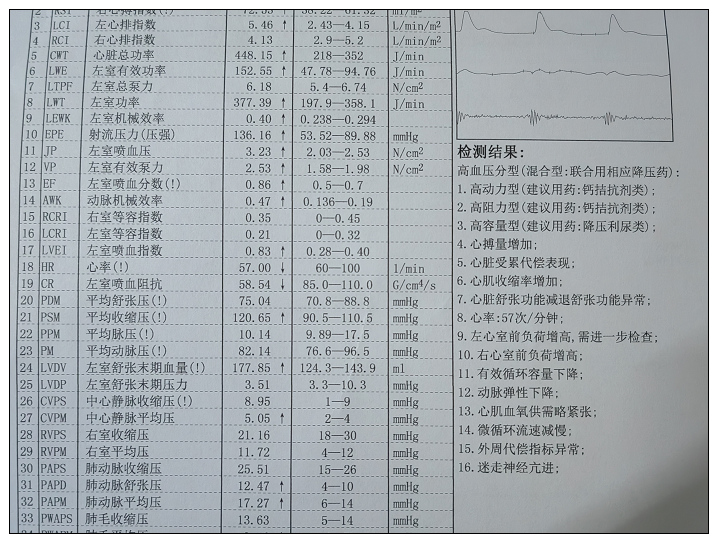 2 RSI 右心搏指数(!) 72.53 ↑ 38.22—61.32 ml/m²
3 LCI 左心排指数 5.46 ↑ 2.43—4.15 L/min/m²
4 RCI 右心排指数 4.13 2.9—5.2 L/min/m²
5 CWT 心脏总功率 448.15 ↑ 218—352 J/min
6 LWE 左室有效功率 152.55 ↑ 47.78—94.76 J/min
7 LTPF 左室总泵力 6.18 5.4—6.74 N/cm²
8 LWT 左室功率 377.39 ↑ 197.9—358.1 J/min
9 LEWK 左室机械效率 0.40 ↑ 0.238—0.294
10 EPE 射流压力(压强) 136.16 ↑ 53.52—89.88 mmHg
11 JP 左室喷血压 3.23 ↑ 2.03—2.53 N/cm²
12 VP 左室有效泵力 2.53 ↑ 1.58—1.98 N/cm²
13 EF 左室喷血分数(!) 0.86 ↑ 0.5—0.7
14 AWK 动脉机械效率 0.47 ↑ 0.136—0.19
15 RCRI 右室等容指数 0.35 0—0.45
16 LCRI 左室等容指数 0.21 0—0.32
17 LVEI 左室喷血指数 0.83 ↑ 0.28—0.40
18 HR 心率(!) 57.00 ↓ 60—100 1/min
19 CR 左室喷血阻抗 58.54 ↓ 85.0—110.0 G/cm⁴/s
20 PDM 平均舒张压(!) 75.04 70.8—88.8 mmHg
21 PSM 平均收缩压(!) 120.65 ↑ 90.5—110.5 mmHg
22 PPM 平均脉压(!) 10.14 9.89—17.5 mmHg
23 PM 平均动脉压(!) 82.14 76.6—96.5 mmHg
24 LVDV 左室舒张末期血量(!) 177.85 ↑ 124.3—143.9 ml
25 LVDP 左室舒张末期压力 3.51 3.3—10.3 mmHg
26 CVPS 中心静脉收缩压(!) 8.95 1—9 mmHg
27 CVPM 中心静脉平均压 5.05 ↑ 2—4 mmHg
28 RVPS 右室收缩压 21.16 18—30 mmHg
29 RVPM 右室平均压 11.72 4—12 mmHg
30 PAPS 肺动脉收缩压 25.51 15—26 mmHg
31 PAPD 肺动脉舒张压 12.47 ↑ 4—10 mmHg
32 PAPM 肺动脉平均压 17.27 ↑ 6—14 mmHg
33 PWAPS 肺毛收缩压 13.63 5—14 mmHg
检测结果:
高血压分型(混合型:联合用相应降压药):
1.高动力型(建议用药:钙拮抗剂类);
2.高阻力型(建议用药:钙拮抗剂类);
3.高容量型(建议用药:降压利尿类);
4.心搏量增加;
5.心脏受累代偿表现;
6.心肌收缩率增加;
7.心脏舒张功能减退舒张功能异常;
8.心率:57次/分钟;
9.左心室前负荷增高,需进一步检查;
10.右心室前负荷增高;
11.有效循环容量下降;
12.动脉弹性下降;
13.心肌血氧供需略紧张;
14.微循环流速减慢;
15.外周代偿指标异常;
16.迷走神经亢进;